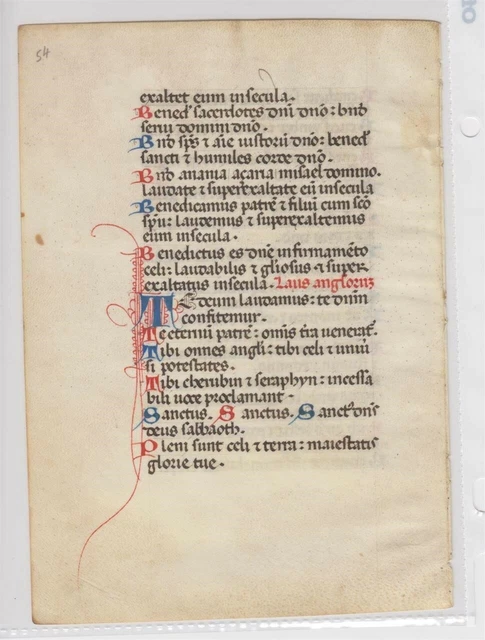 54
exaltet eum in secula.
Bened̄ sacerdotes dn̄i dn̄o: bn̄d
serui domini dn̄o.
Bn̄d sp̄s ⁊ aīe iustoꝝ dn̄o: bened̄
sancti ⁊ humiles corde dn̄o.
Bn̄d anania açaria misael domino.
laudate ⁊ superexaltate eū in secula
Benedicamus patrē ⁊ filiū cum sc̄o
sp̄u: laudemus ⁊ superexaltemus
eum in secula.
Benedictus es dn̄e in firmamēto
celi: laudabilis ⁊ gl̄iosus ⁊ super
exaltatus in secula. Laus angloꝝ
Te deum laudamus: te dn̄m
confitemur.
Te eternū patrē: om̄is t̄ra venerat᷑.
Tibi omnes angl̄i: tibi celi ⁊ uniū
si potestates.
Tibi cherubin ⁊ seraphyn: incessa
bili uoce proclamant.
Sanctus. Sanctus. Sanct᷒ dn̄s
deus sabaoth.
Pleni sunt celi ⁊ terra: maiestatis
glorie tue.